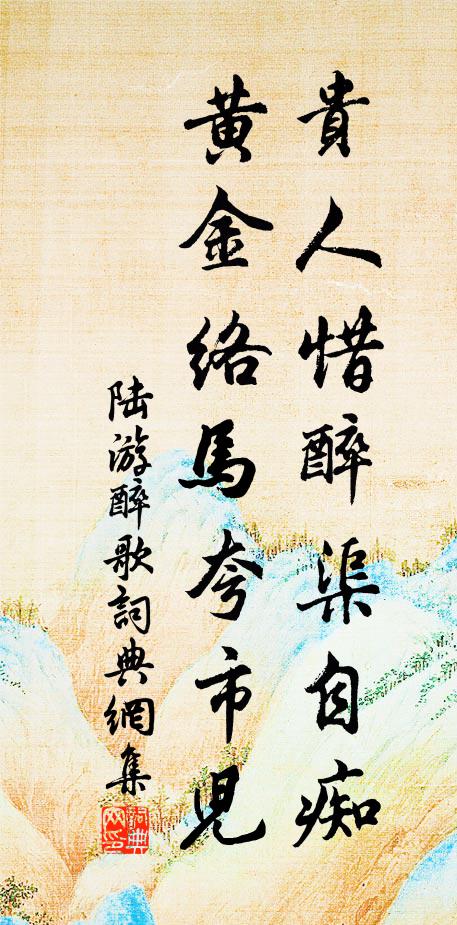 貴人惜醉渠自痴
黃金絡馬夸市兒
陆游醉歌詞典網集
詞典